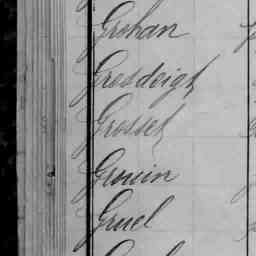 Grohan
Grosdeigh
Grosset
Grouin
Gruel